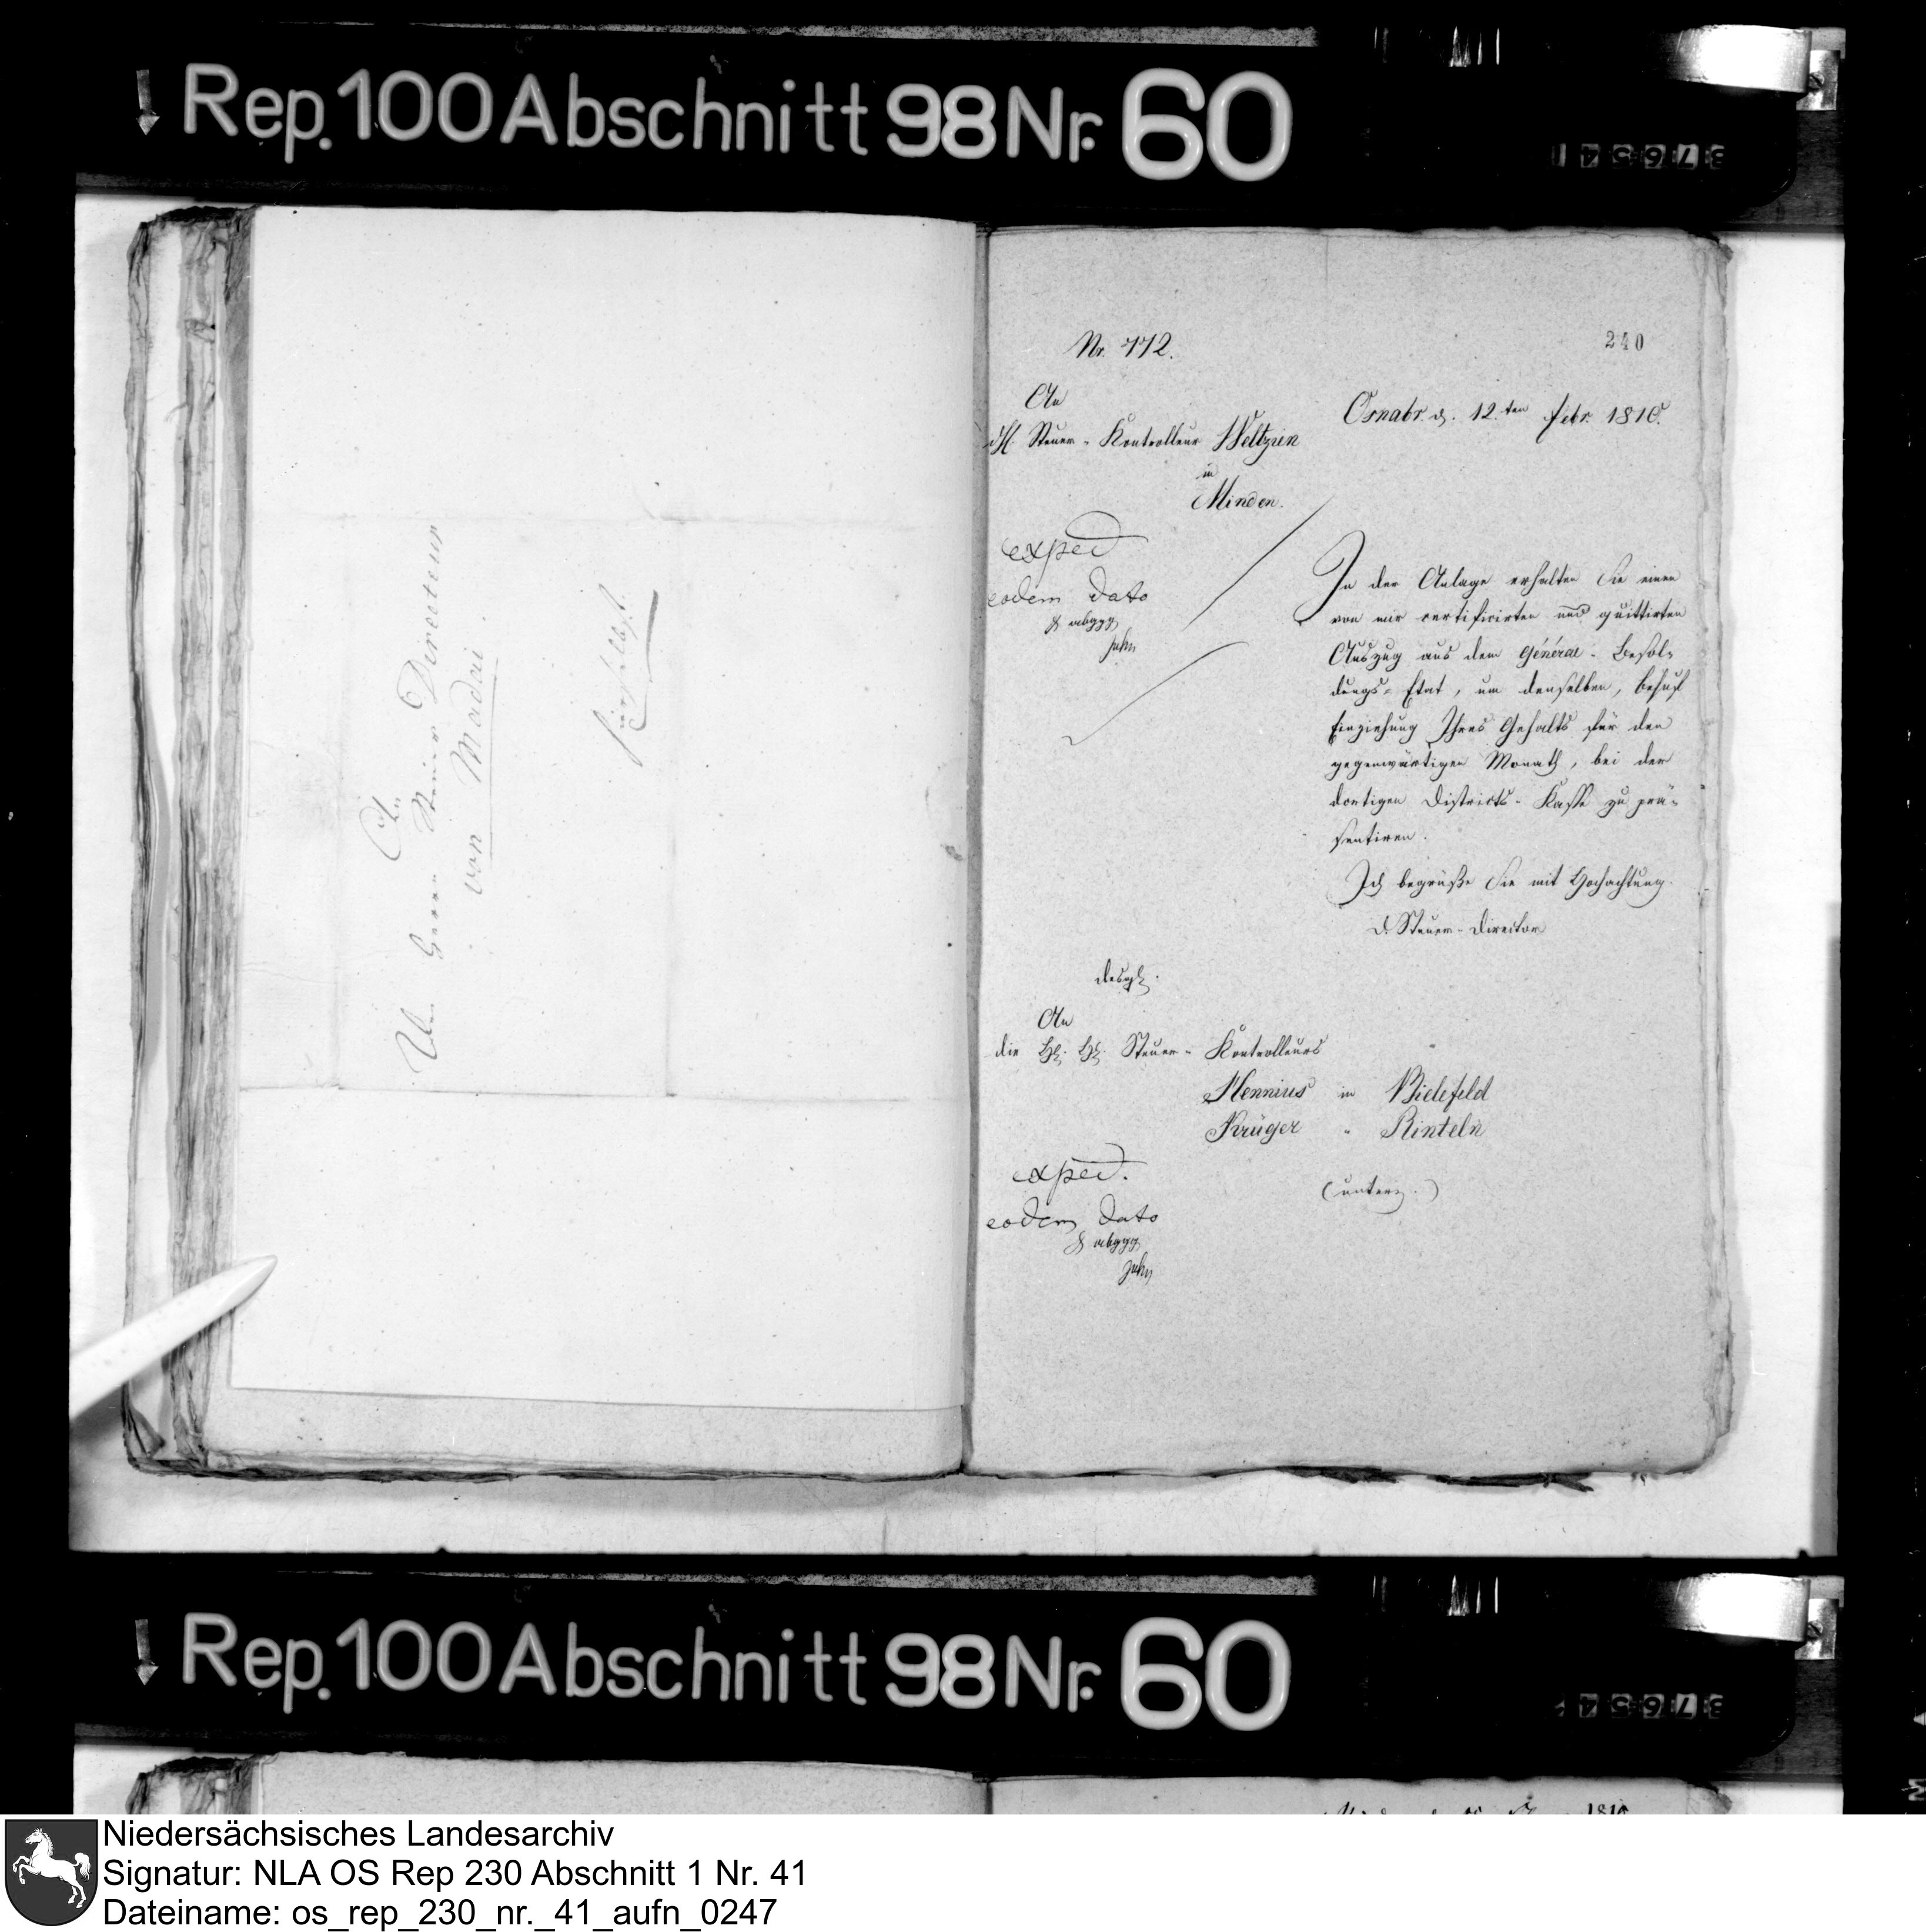 Rep. 100 Abschnitt 98 Nr. 60
An
den Herrn Steuer Directeur
von Madai
hierselbst.
Nr. 772.
240
An
dH. Steuer-Kontrolleur Weltzien
in
Minden.
Osnabr. d. 12.ten Febr. 1810.
exped
eodem dato
& abggg
Jahn
In der Anlage erhalten Sie einen
von mir certificirten und quittirten
Auszug aus dem Général-Besol-
dungs-Etat, um denselben, behuf
Einziehung Ihres Gehalts für den
gegenwärtigen Monath, bei der
dortigen Districts-Kasse zu prä-
sentiren.
Ich begrüße Sie mit Hochachtung.
D. Steuer-Director
desgl.
An
die HH. HH. Steuer-Kontrolleurs
Hennius in Bielefeld
Krüger " Rinteln
(unterz.)
exped.
eodem dato
& abggg
Jahn
Rep. 100 Abschnitt 98 Nr. 60
1810
Niedersächsisches Landesarchiv
Signatur: NLA OS Rep 230 Abschnitt 1 Nr. 41
Dateiname: os_rep_230_nr._41_aufn_0247